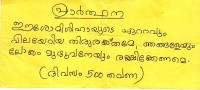 പ്രാർത്ഥന
ഈശോമിശിഹായുടെ ഏറ്റവും
വിലയേറിയ തിരുരക്തമേ, ഞങ്ങളെയും
ലോകം മുഴുവനേയും രക്ഷിക്കണമേ.
(ദിവസം 500 തവണ)